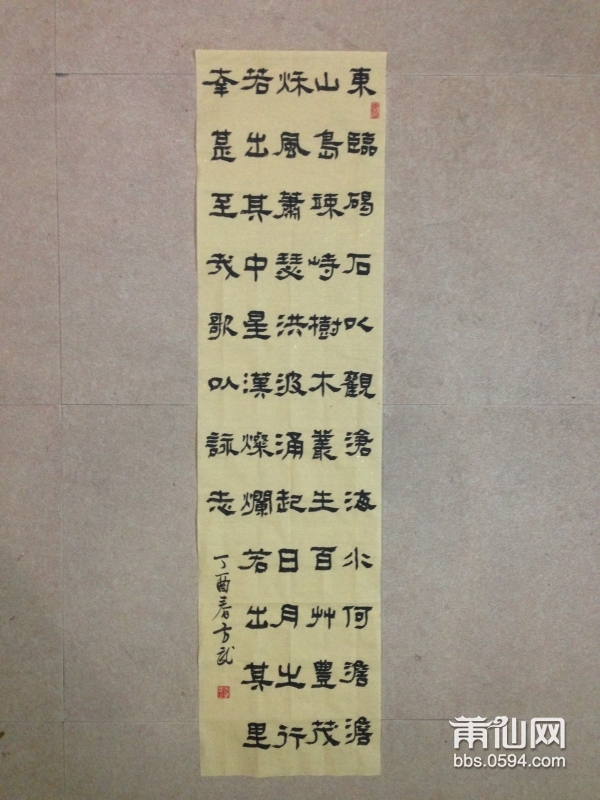 東臨碣石以觀滄海水何澹澹
山島竦峙樹木叢生百艸豐茂
秌風蕭瑟洪波涌起日月之行
若出其中星漢燦爛若出其里
幸甚至我歌以詠志
丁酉春方武
莆仙网
bbs.0594.com